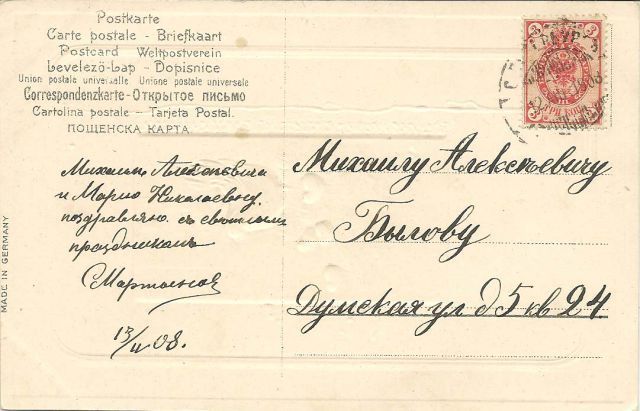 Postkarte
Carte postale - Briefkaart
Postcard Weltpostverein
Levelező-Lap - Dopisnice
Union postale universelle Unione postale universele
Correspondenzkarte - Открытое письмо
Cartolina postale - Tarjeta Postal.
ПОЩЕНСКА КАРТА
3 3
3 3
MADE IN GERMANY
Михаила Алексѣевича
и Марію Николаевну
поздравляю съ свѣтлымъ
праздникомъ
13/IV 08.
Михаилу Алексѣевичу
Былову
Думская ул д 5 кв 24